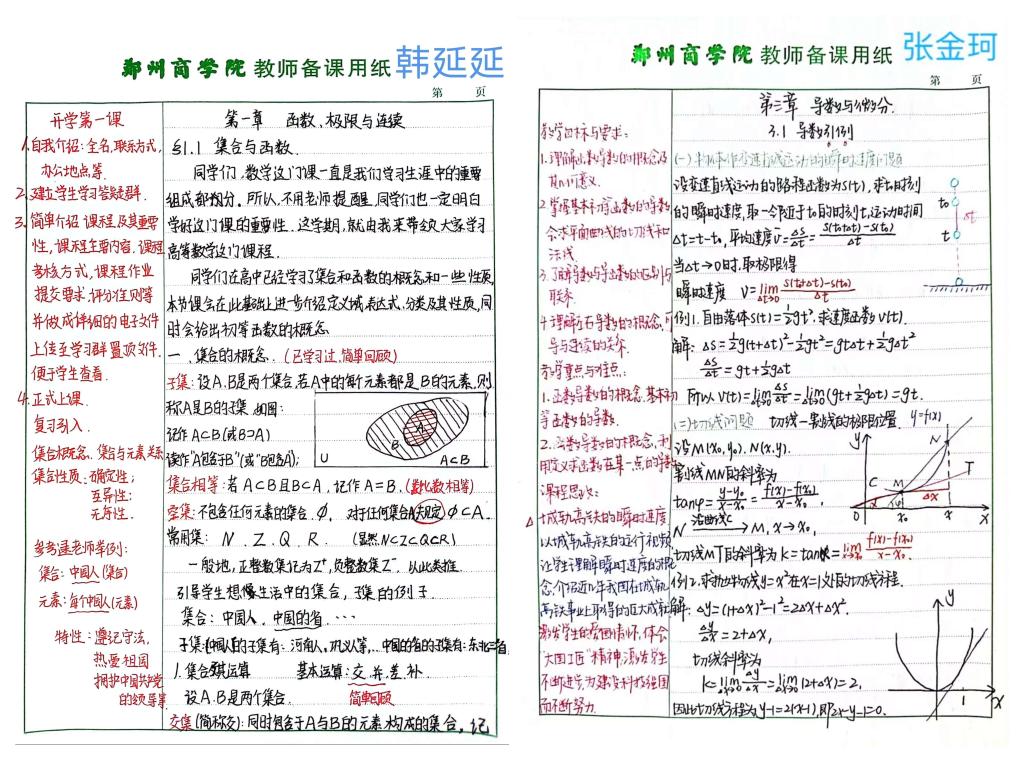 郑州商学院 教师备课用纸 韩延延
第 页
开学第一课
1.自我介绍:全名,联系方式,
办公地点等.
2.建立学生学习答疑群.
3.简单介绍课程及其重要
性,课程主要内容.课程
考核方式,课程作业
提交要求.评分准则等
并做成详细的电子文件
上传至学习群置顶文件.
便于学生查看.
4.正式上课.
复习引入.
集合相概念、集合与元素关系
集合性质:确定性;
互异性;
无序性.
参考逯老师举例:
集合:中国人(集合)
元素:每个中国人(元素)
特性:遵纪守法,
热爱祖国
拥护中国共产党
的领导等
第一章 函数、极限与连续
§1.1 集合与函数.
同学们,数学这门课一直是我们学习生涯中的重要
组成部分,所以,不用老师提醒,同学们也一定明白
学好这门课的重要性.这学期,就由我来带领大家学习
高等数学这门课程.
同学们在高中已经学习了集合和函数的概念和一些性质,
本节课会在此基础上进一步介绍定义域,表达式,分类及其性质,同
时会给出初等函数的概念
一 集合的概念.(已学习过,简单回顾)
子集:设A.B是两个集合,若A中的每个元素都是B的元素,则
称A是B的子集 如图:
记作A⊂B(或B⊃A)
读作"A包含于B"(或"B包含A");
A
B
U
A⊂B
集合相等:若A⊂B且B⊂A,记作A=B.(类比数相等)
空集:不包含任何元素的集合.∅, 对于任何集合A,规定∅⊂A.
常用集: N . Z . Q . R . (显然.N⊂Z⊂Q⊂R)
一般地,正整数集记为Z⁺,负整数集Z⁻.以此类推
引导学生想像生活中的集合,子集的例子.
集合:中国人.中国的省....
子集:(中国人)的子集有:河南人,巩义人等,..中国的省的子集有:东北三省
1.集合的运算 基本运算:交.并.差.补
设A.B是两个集合. 简单回顾
交集(简称交):同时包含于A与B的元素构成的集合,记
郑州商学院 教师备课用纸 张金珂
第 页
教学目标与要求:
1.理解函数导数的概念及
其几何意义.
2.掌握基本初等函数的导数
会求平面曲线的切线和
法线.
3.了解导数与导函数的区别与
联系.
4.理解左右导数的概念,可
导与连续的关系.
教学重点与难点:
1.函数导数的概念,基本初
等函数的导数.
2.函数导数的概念,利
用定义求函数在某一点的导数
课程思政:
城轨高铁的瞬时速度
以城轨高铁的运行视频
让学生理解瞬时速度的概
念,介绍近几年我国在城轨
高铁事业上取得的巨大成就
激发学生的爱国情怀,体会
"大国工匠"精神,激发学生
不断进步,为建设科技强国
而不断努力.
第三章 导数与微分.
3.1 导数引例
(一)物体作变速直线运动的瞬时速度问题
设变速直线运动的路程函数为S(t),求t₀时刻
的瞬时速度,取一邻近于t₀的时刻t,运动时间
Δt=t-t₀,平均速度v̄=Δs/Δt=S(t₀+Δt)-S(t₀)/Δt
当Δt→0时,取极限得
瞬时速度 V=lim Δt→0 S(t₀+Δt)-S(t₀)/Δt
t₀
Δt
t
例1.自由落体S(t)=½gt².求速度函数V(t).
解:ΔS=½g(t+Δt)²-½gt²=gtΔt+½gΔt²
Δs/Δt=gt+½gΔt
所以V(t)=lim Δt→0 Δs/Δt=lim Δt→0(gt+½gΔt)=gt.
(二)切线问题 切线—割线的极限位置. y=f(x)
设M(x₀,y₀).N(x.y).
割线MN的斜率为
tanφ=y-y₀/x-x₀=f(x)-f(x₀)/x-x₀,
N 沿曲线C→M,x→x₀,
切线MT的斜率为k=tanα=lim x→x₀ f(x)-f(x₀)/x-x₀
y
N
T
C
M
Δx
0
x₀
x
x
例2.求抛物线y=x²在x=1处的切线方程.
解:Δy=(1+Δx)²-1²=2Δx+Δx².
Δy/Δx=2+Δx,
切线斜率为
k=lim Δx→0 Δy/Δx=lim Δx→0(2+Δx)=2,
因此切线方程为y-1=2(x-1),即2x-y-1=0.
y
1
x